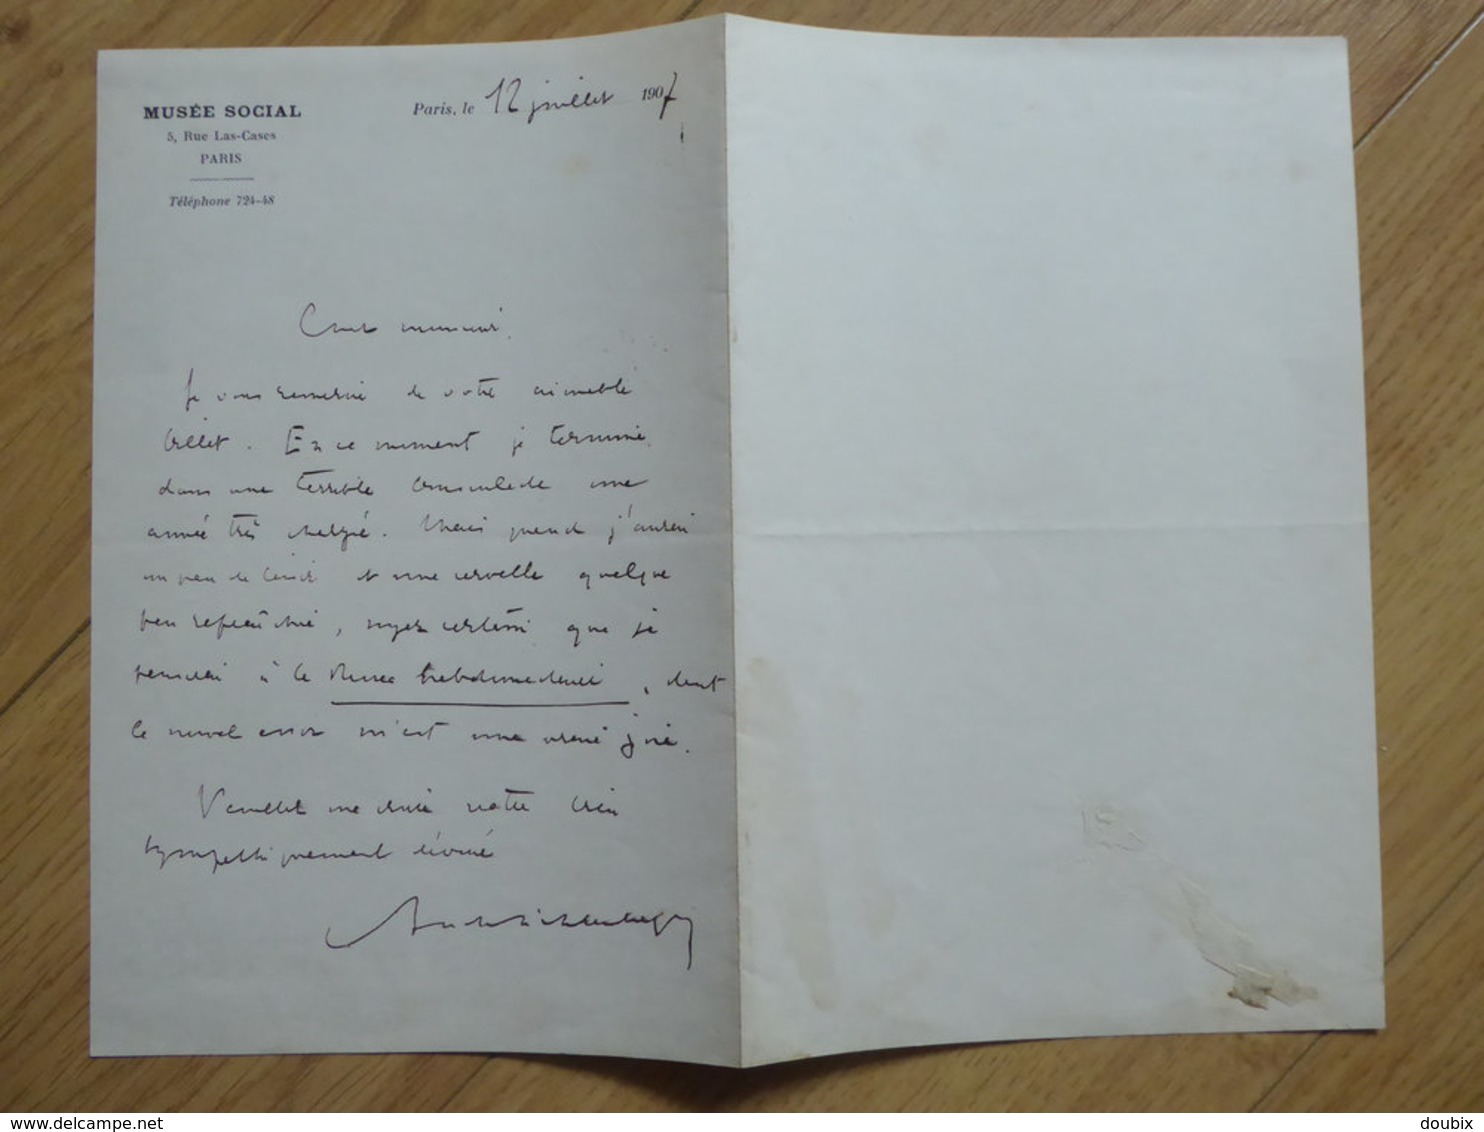 MUSÉE SOCIAL
5, Rue Las-Cases
PARIS
Téléphone 724-48
Paris, le 12 juillet 1907
Cher monsieur,
Je vous remercie de votre aimable
billet. En ce moment je termine
dans une terrible bousculade une
année très chargée. Mais quand j'aurai
un peu de loisir et une cervelle quelque
peu rafraîchie, soyez certain que je
penserai à la Revue hebdomadaire, dont
le nouvel essor m'est une vraie joie.
Veuillez me croire votre bien
sympathiquement dévoué
www.delcampe.net
doubix